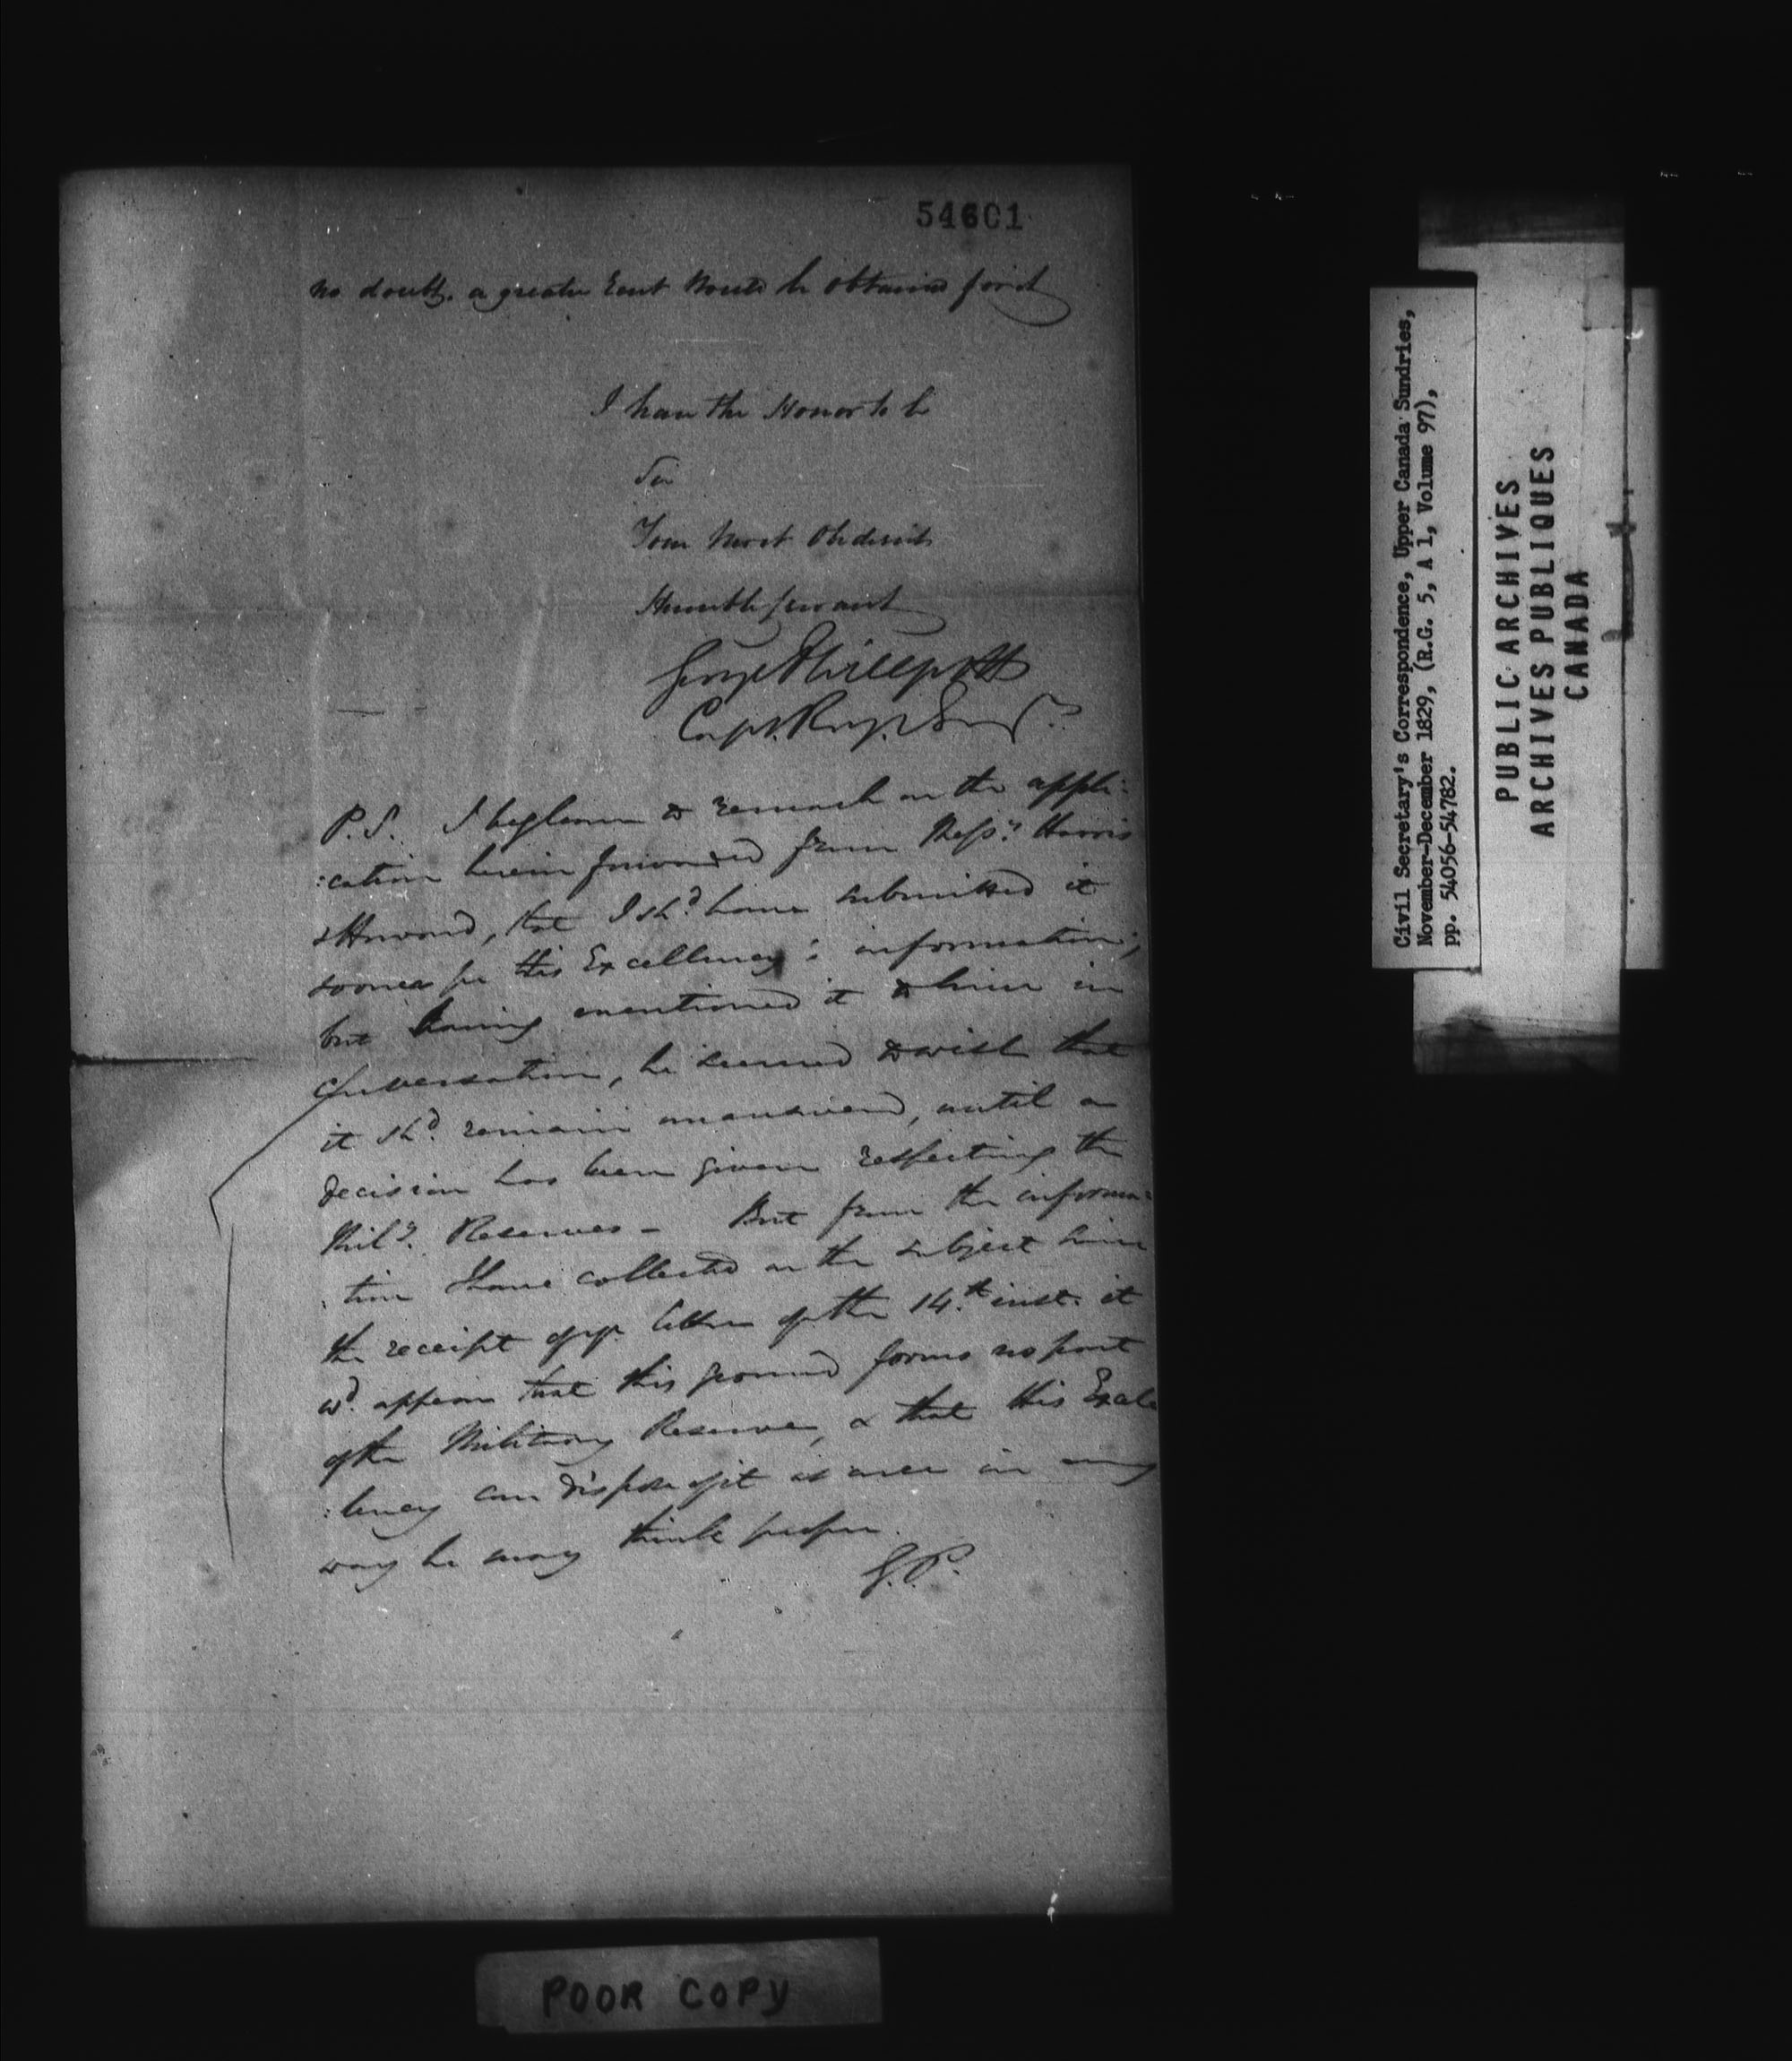 54601
no doubt, a greater Rent Would be obtained for it
I have the Honor to be
Sir
Your Most Obedient
Humble Servant
George Phillpotts
Capt. Roy. Eng.rs
P.S. I beg leave to remark on the appli-
:cation herein forwarded from Messrs Harris
& Howard, that I shd have submitted it
sooner for His Excellency's information;
but having mentioned it to him in
conversation, he seemed to wish that
it shd. remain unanswered, until a
decision has been given respecting the
Mily. Reserves - But from the informa:
:tion I have collected on the subject since
the receipt of yr. letter of the 14.th inst. it
wd. appear that this ground forms no part
of the Military Reserve, & that His Excel
:lency can dispose of it as in any
way he may think proper.
G.P.
POOR COPY
Civil Secretary's Correspondence, Upper Canada Sundries,
November-December 1829, (R.G. 5, A 1, Volume 97),
pp. 54056-54782.
PUBLIC ARCHIVES
ARCHIVES PUBLIQUES
CANADA